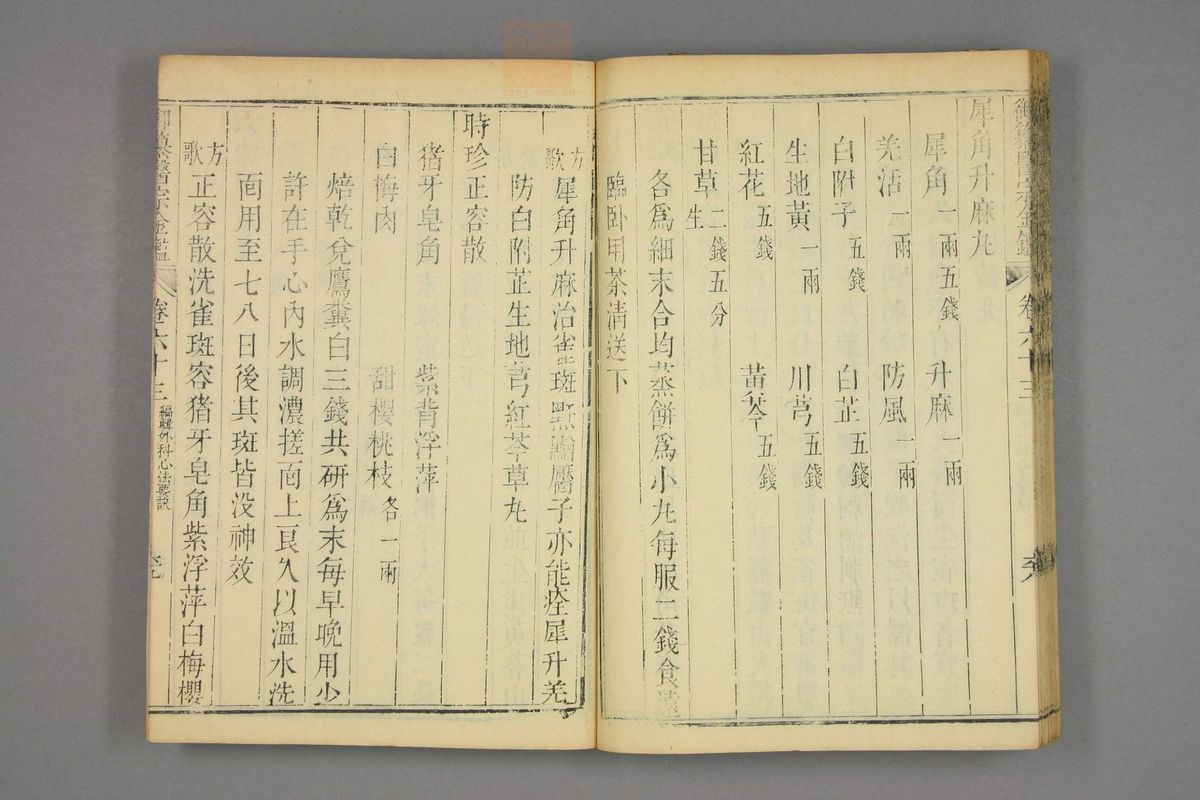 犀角升麻丸
犀角 一兩五錢 升麻 一兩
羌活 一兩 防風 一兩
白附子 五錢 白芷 五錢
生地黃 一兩 川芎 五錢
紅花 五錢 黃芩 五錢
甘草 生 二錢五分
各為細末合均蒸餅為小丸每服二錢食遠
臨卧用茶清送下
方歌 犀角升麻治雀斑黑䵟黶子亦能痊犀升羌
防白附芷生地芎紅芩草丸
時珍正容散
猪牙皂角 紫背浮萍
白梅肉 甜櫻桃枝 各一兩
焙乾兌鷹糞白三錢共研為末每早晚用少
許在手心內水調濃搓面上良久以溫水洗
面用至七八日後其斑皆没神效
方歌 正容散洗雀斑容猪牙皂角紫浮萍白梅櫻
御纂醫宗金鑑 卷六十三 編輯外科心法要訣